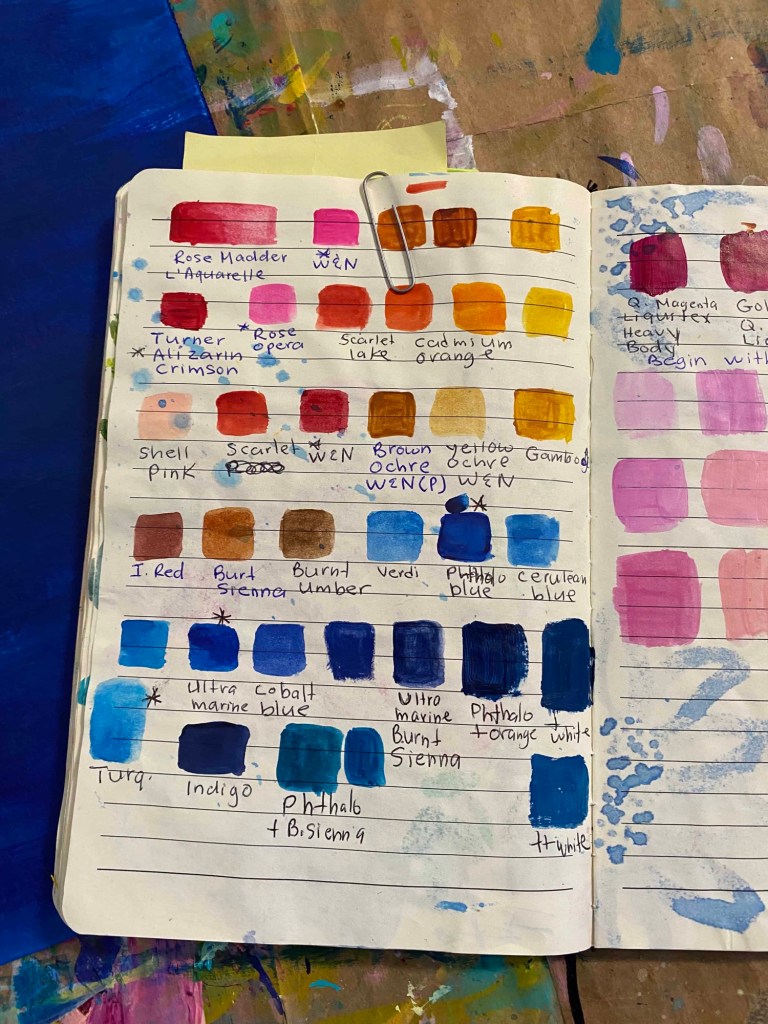 Rose Madder
L'Aquarelle
W&N
Turner
* Alizarin
Crimson
* Rose
opera
Scarlet
lake
Cadmium
orange
Shell
Pink
Scarlet
W&N
Brown
Ochre
W&N(P)
yellow
ochre
W&N
Gambog
I. Red
Burt
Sienna
Burnt
Umber
Verdi
*
Phthalo
blue
cerulean
blue
*
Ultra
marine
Cobalt
blue
Ultra
marine
Burnt
Sienna
Phthalo
+ orange
+
white
*
Turq.
Indigo
Phthalo
+ B.Sienna
++ white
Q. Magenta
Liquitex
Heavy
Body
Gol
Q.
Begin with